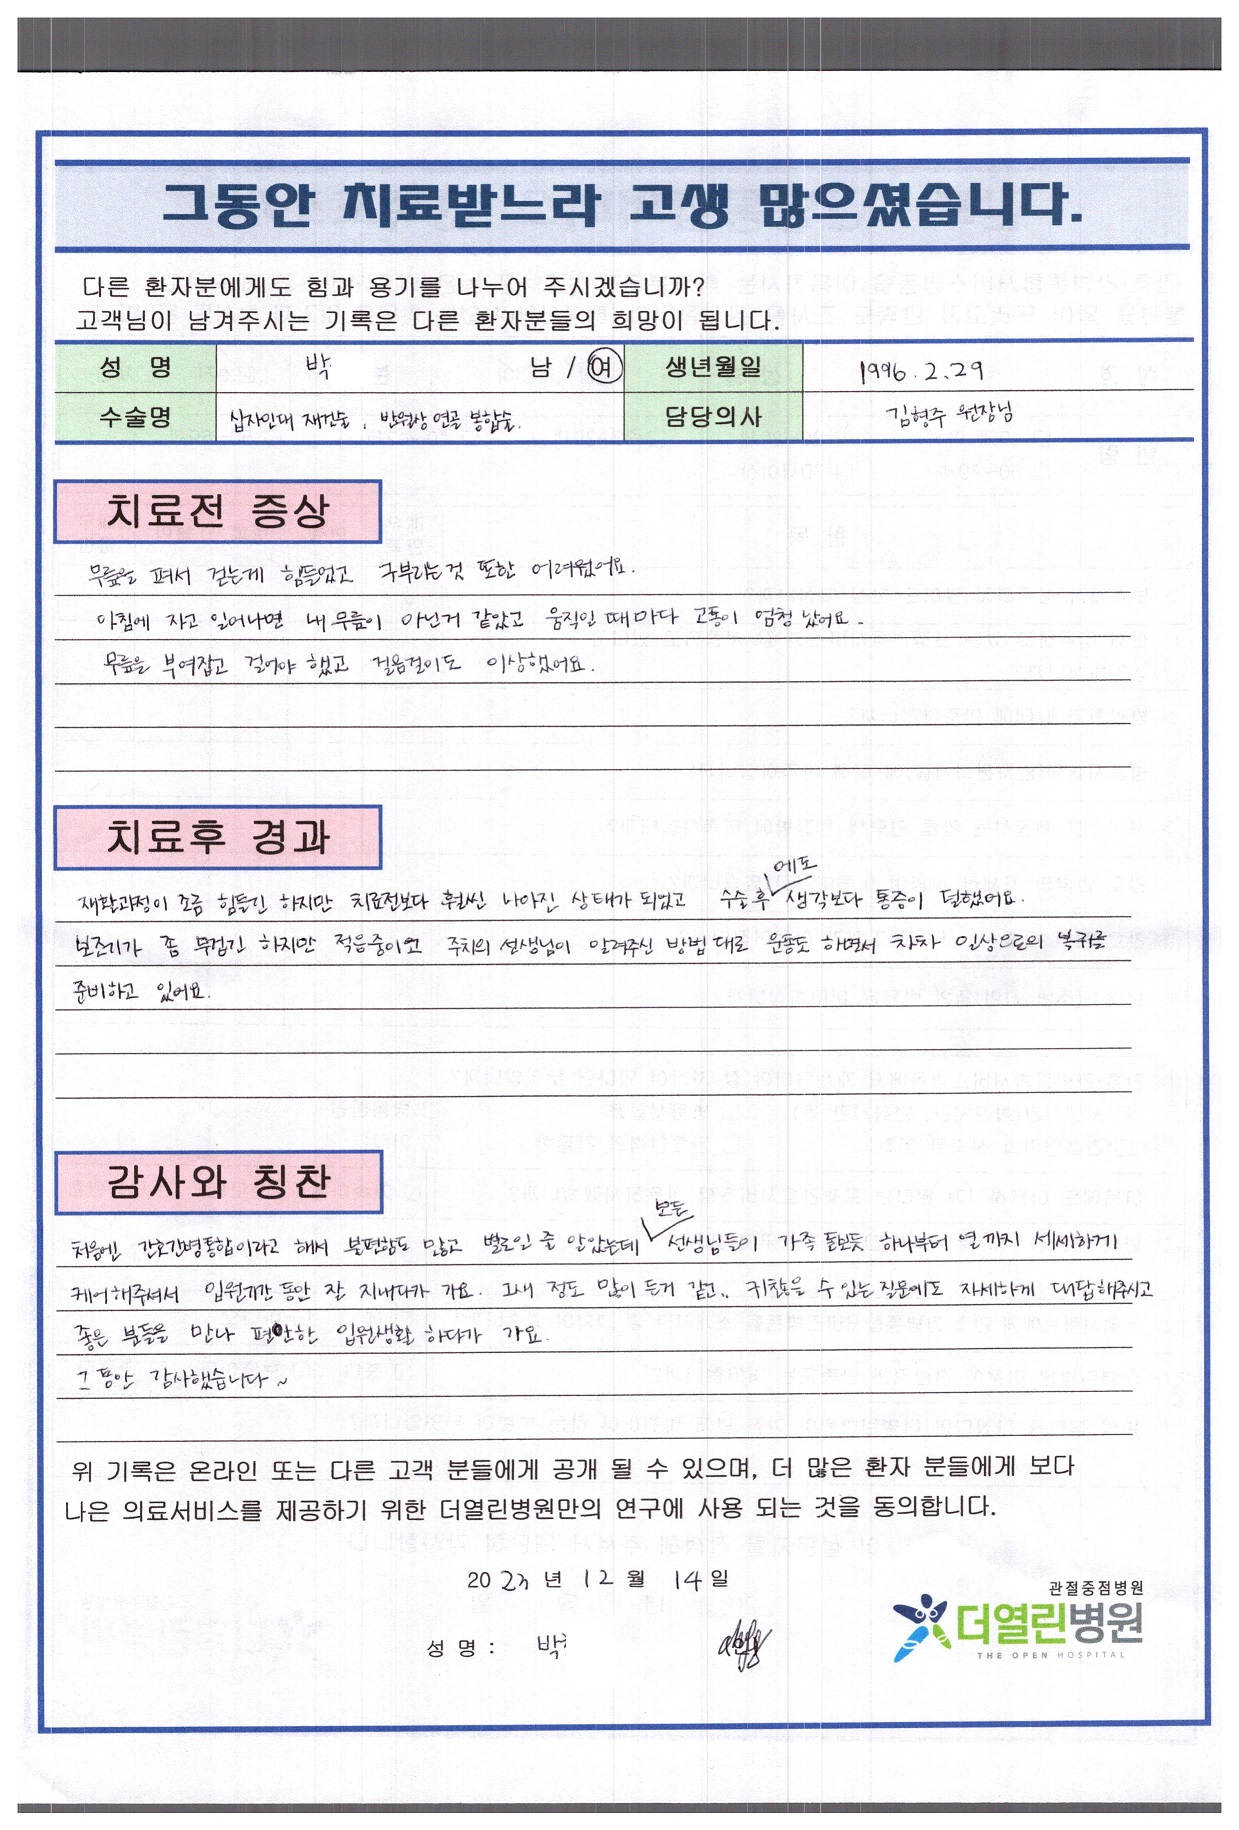 그동안 치료받느라 고생 많으셨습니다.
다른 환자분에게도 힘과 용기를 나누어 주시겠습니까?
고객님이 남겨주시는 기록은 다른 환자분들의 희망이 됩니다.
성 명 박 남 / 여 생년월일 1996.2.29
수술명 십자인대 재건술, 반월상 연골 봉합술. 담당의사 김형주 원장님
치료전 증상
무릎을 펴서 걷는게 힘들었고 구부리는것 또한 어려웠어요.
아침에 자고 일어나면 내 무릎이 아닌거 같았고 움직일 때마다 고통이 엄청 났어요.
무릎을 부여잡고 걸어야 했고 걸음걸이도 이상했어요.
치료후 경과
재활과정이 조금 힘들긴 하지만 치료전보다 훨씬 나아진 상태가 되었고 수술후에도 생각보다 통증이 덜했어요.
보조기가 좀 무겁긴 하지만 적응중이고 주치의 선생님이 알려주신 방법대로 운동도 하면서 차차 일상으로의 복귀를
준비하고 있어요.
감사와 칭찬
처음엔 간호간병통합이라고 해서 불편함도 많고 별로일 줄 알았는데 모든 선생님들이 가족 돌보듯 하나부터 열까지 세세하게
케어해주셔서 입원기간 동안 잘 지내다가 가요. 그새 정도 많이 든거 같고.. 귀찮을 수 있는 질문에도 자세하게 대답해주시고
좋은 분들을 만나 편안한 입원생활 하다가 가요.
그동안 감사했습니다~
위 기록은 온라인 또는 다른 고객 분들에게 공개 될 수 있으며, 더 많은 환자 분들에게 보다
나은 의료서비스를 제공하기 위한 더열린병원만의 연구에 사용 되는 것을 동의합니다.
2023 년 12 월 14 일
성 명 : 박
관절중점병원
더열린병원
THE OPEN HOSPITAL